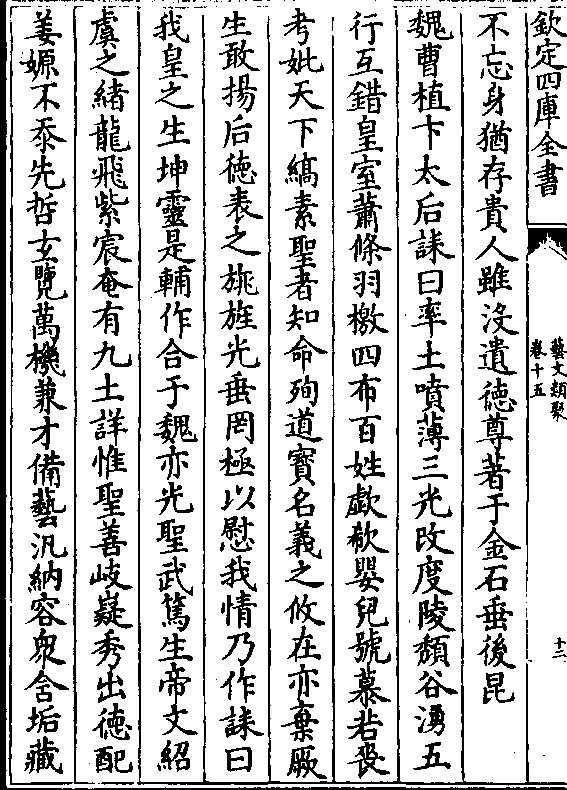 欽定四庫全書
藝文類聚
卷十五
十二
不忘身猶存貴人雖沒遺徳尊著于金石垂後昆
魏曹植卞太后誄曰率土噴薄三光改度陵頽谷湧五
行互錯皇室蕭條羽檄四布百姓歔欷嬰兒號慕若喪
考妣天下縞素聖者知命殉道寳名義之攸在亦棄厥
生敢揚后徳表之旐旌光垂罔極以慰我情乃作誄曰
我皇之生坤靈是輔作合于魏亦光聖武篤生帝文紹
虞之緒龍飛紫宸奄有九土詳惟聖善岐嶷秀出徳配
姜嫄不忝先哲玄覽萬機兼才備藝汎納容衆含垢藏